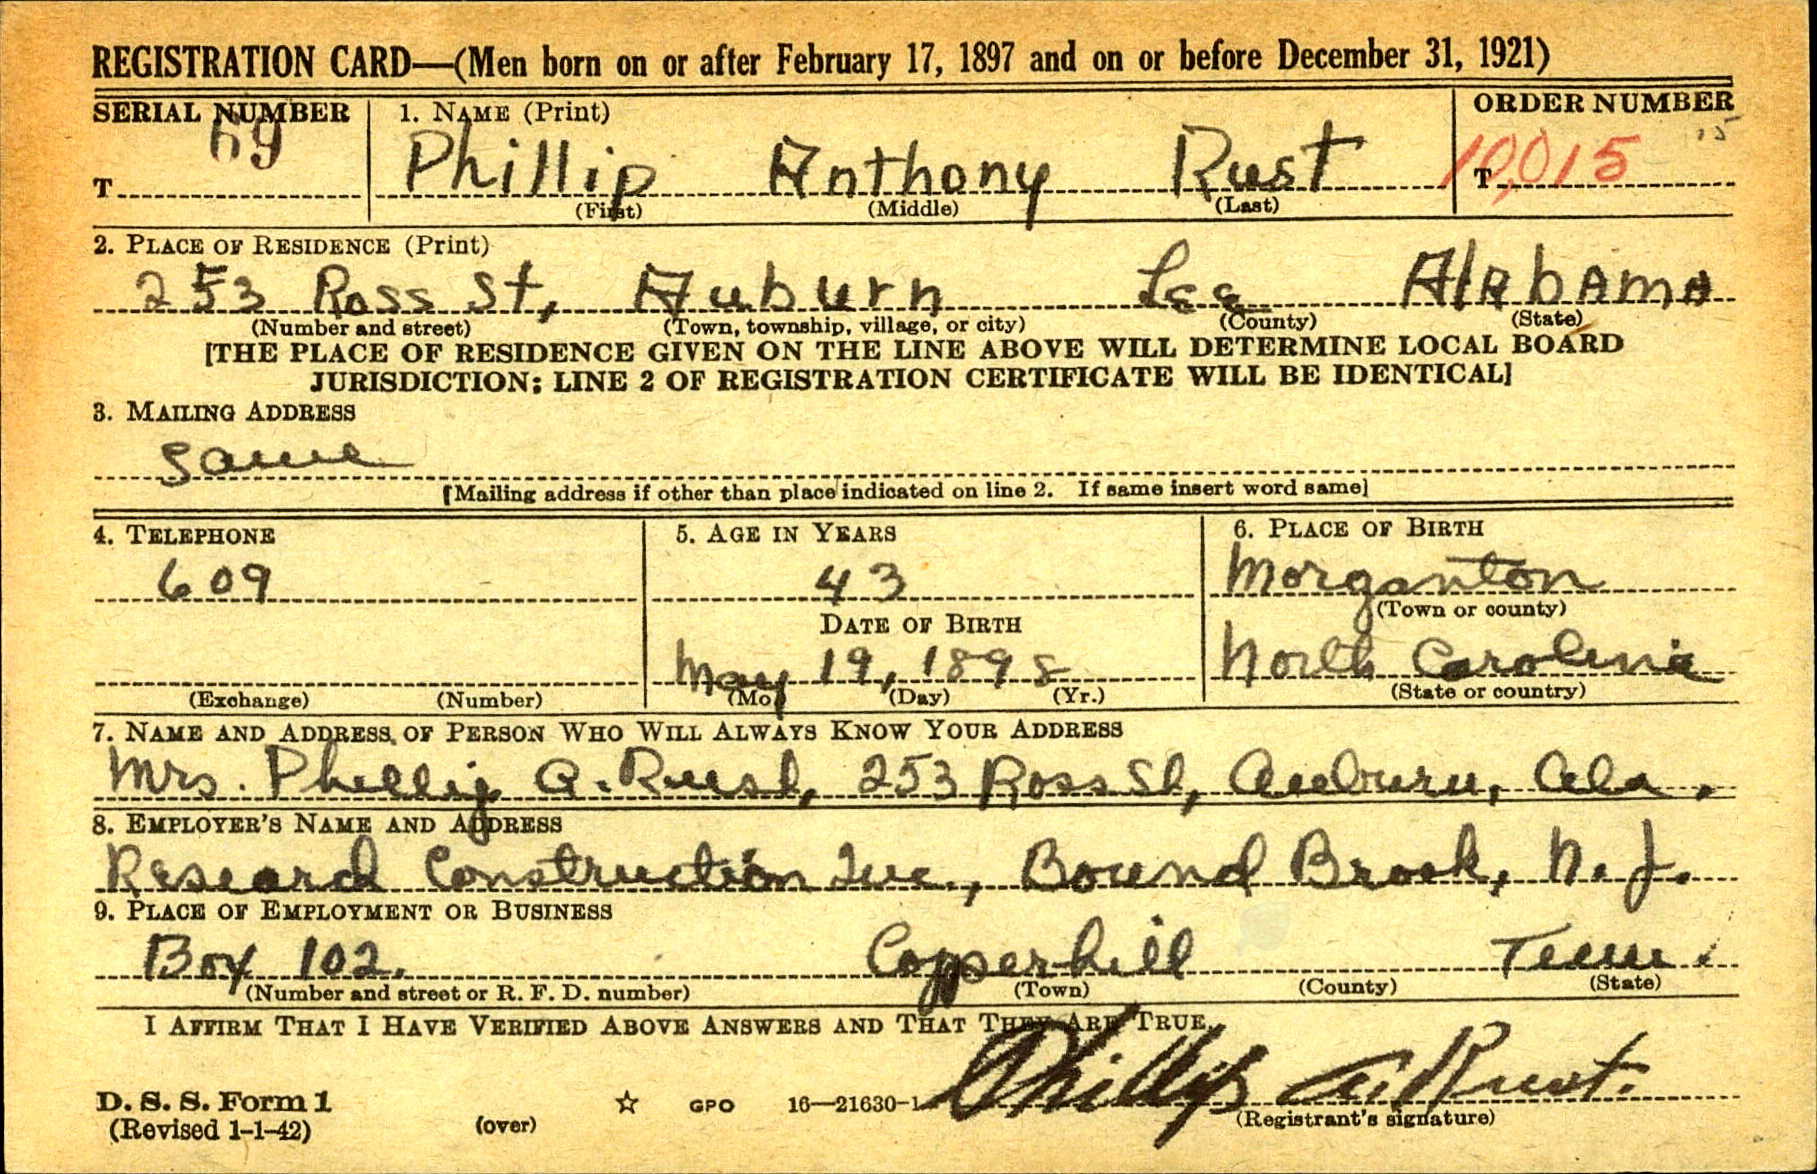 REGISTRATION CARD—(Men born on or after February 17, 1897 and on or before December 31, 1921)
SERIAL NUMBER 1. NAME (Print) ORDER NUMBER
T 69 Phillip Anthony Rust T 10,015 15
(First) (Middle) (Last)
2. PLACE OF RESIDENCE (Print)
253 Ross St, Auburn Lee AlABAMA
(Number and street) (Town, township, village, or city) (County) (State)
[THE PLACE OF RESIDENCE GIVEN ON THE LINE ABOVE WILL DETERMINE LOCAL BOARD
JURISDICTION; LINE 2 OF REGISTRATION CERTIFICATE WILL BE IDENTICAL]
3. MAILING ADDRESS
Same
[Mailing address if other than place indicated on line 2. If same insert word same]
4. TELEPHONE 5. AGE IN YEARS 6. PLACE OF BIRTH
609 43 Morganton
(Town or county)
DATE OF BIRTH
May 19, 1898 North Carolina
(Exchange) (Number) (Mo.) (Day) (Yr.) (State or country)
7. NAME AND ADDRESS OF PERSON WHO WILL ALWAYS KNOW YOUR ADDRESS
Mrs. Phillip A. Rust, 253 Ross St, Auburn, Ala.
8. EMPLOYER'S NAME AND ADDRESS
Research Construction Inc., Bound Brook, N. J.
9. PLACE OF EMPLOYMENT OR BUSINESS
Box 102. Copperhill Tenn.
(Number and street or R. F. D. number) (Town) (County) (State)
I AFFIRM THAT I HAVE VERIFIED ABOVE ANSWERS AND THAT THEY ARE TRUE.
Phillip A. Rust.
D. S. S. Form 1
(Revised 1-1-42) (over) ☆ GPO 16—21630-1 (Registrant's signature)